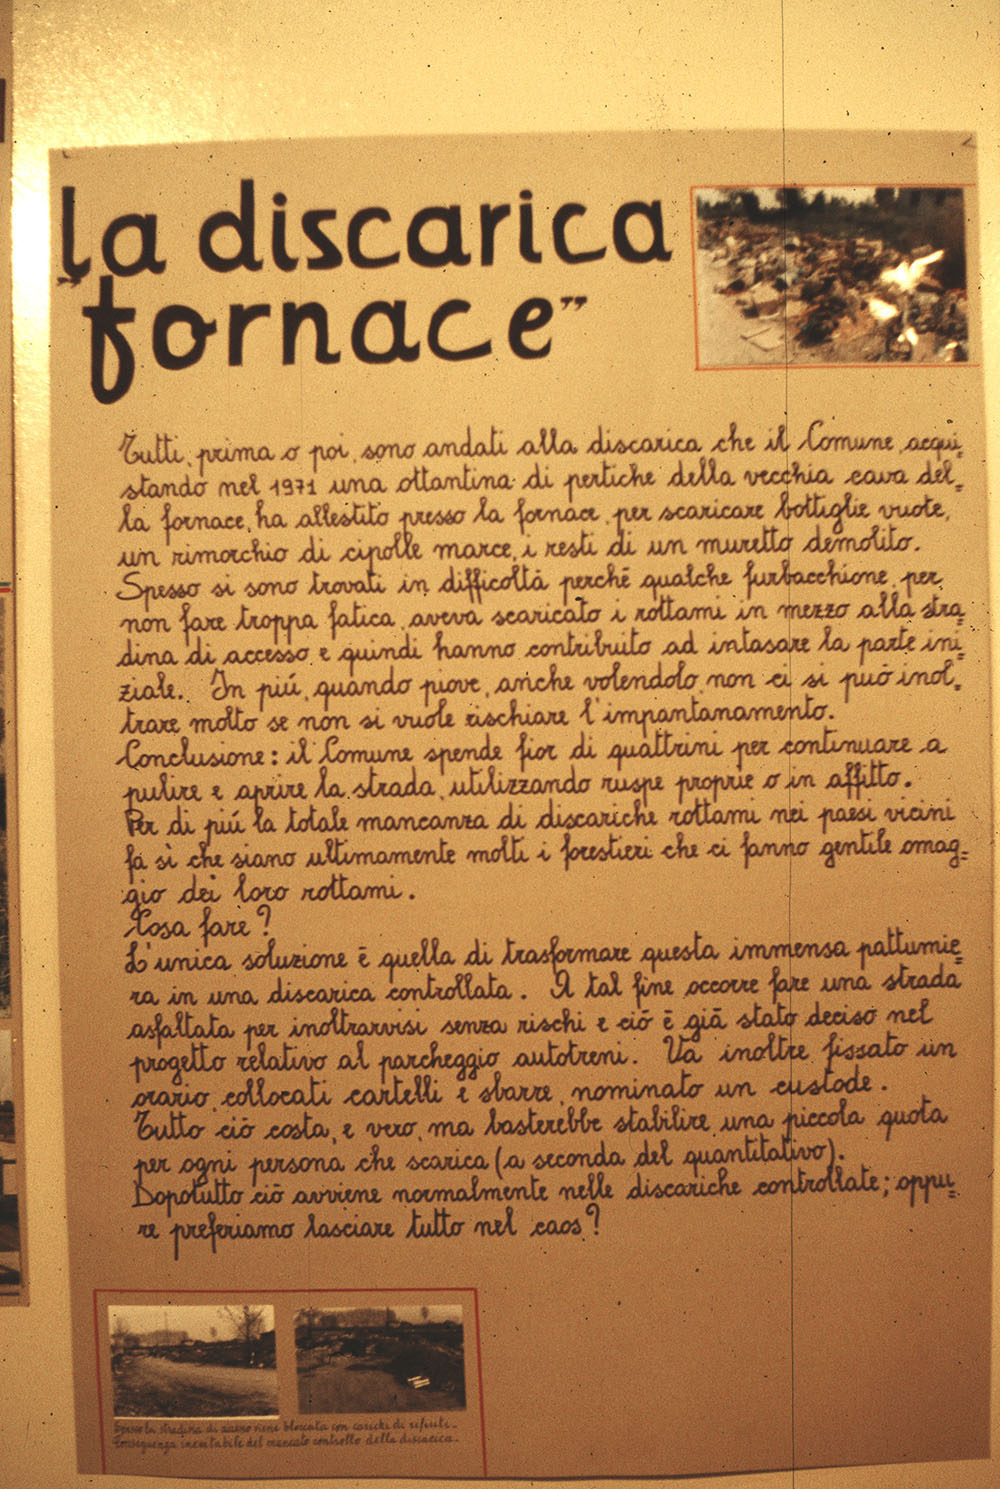 la discarica
"fornace"
Tutti, prima o poi, sono andati alla discarica che il Comune, acqui=
stando nel 1971 una ottantina di pertiche della vecchia cava del=
la fornace, ha allestito presso la fornace, per scaricare bottiglie vuote,
un rimorchio di cipolle marce, i resti di un muretto demolito.
Spesso si sono trovati in difficoltà perché qualche furbacchione, per
non fare troppa fatica, aveva scaricato i rottami in mezzo alla stra=
dina di accesso e quindi hanno contribuito ad intasare la parte ini=
ziale. In piú, quando piove, anche volendolo, non ci si può inol=
trare molto se non si vuole rischiare l'impantanamento.
Conclusione: il Comune spende fior di quattrini per continuare a
pulire e aprire la strada, utilizzando ruspe proprie o in affitto.
Per di piú la totale mancanza di discariche rottami nei paesi vicini
fa sì che siano ultimamente molti i forestieri che ci fanno gentile omag=
gio dei loro rottami.
Cosa fare?
L'unica soluzione è quella di trasformare questa immensa pattumie=
ra in una discarica controllata. A tal fine occorre fare una strada
asfaltata per inoltrarvisi senza rischi e ciò è già stato deciso nel
progetto relativo al parcheggio autotreni. Va inoltre fissato un
orario, collocati cartelli e sbarre, nominato un custode.
Tutto ciò costa, e vero, ma basterebbe stabilire una piccola quota
per ogni persona che scarica (a seconda del quantitativo).
Dopotutto ciò avviene normalmente nelle discariche controllate; oppu=
re preferiamo lasciare tutto nel caos?
Spesso la stradina di accesso viene bloccata con carichi di rifiuti.
Conseguenza inevitabile del mancato controllo della discarica.